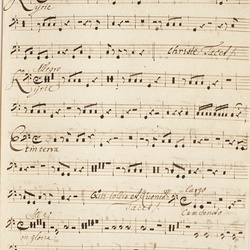 Kyrie
Christe Tacet
Allegro
Kyrie
Et in terra
Largo
Qui tollis et Quoniam
Tacet
Cum Sancto
in gloria